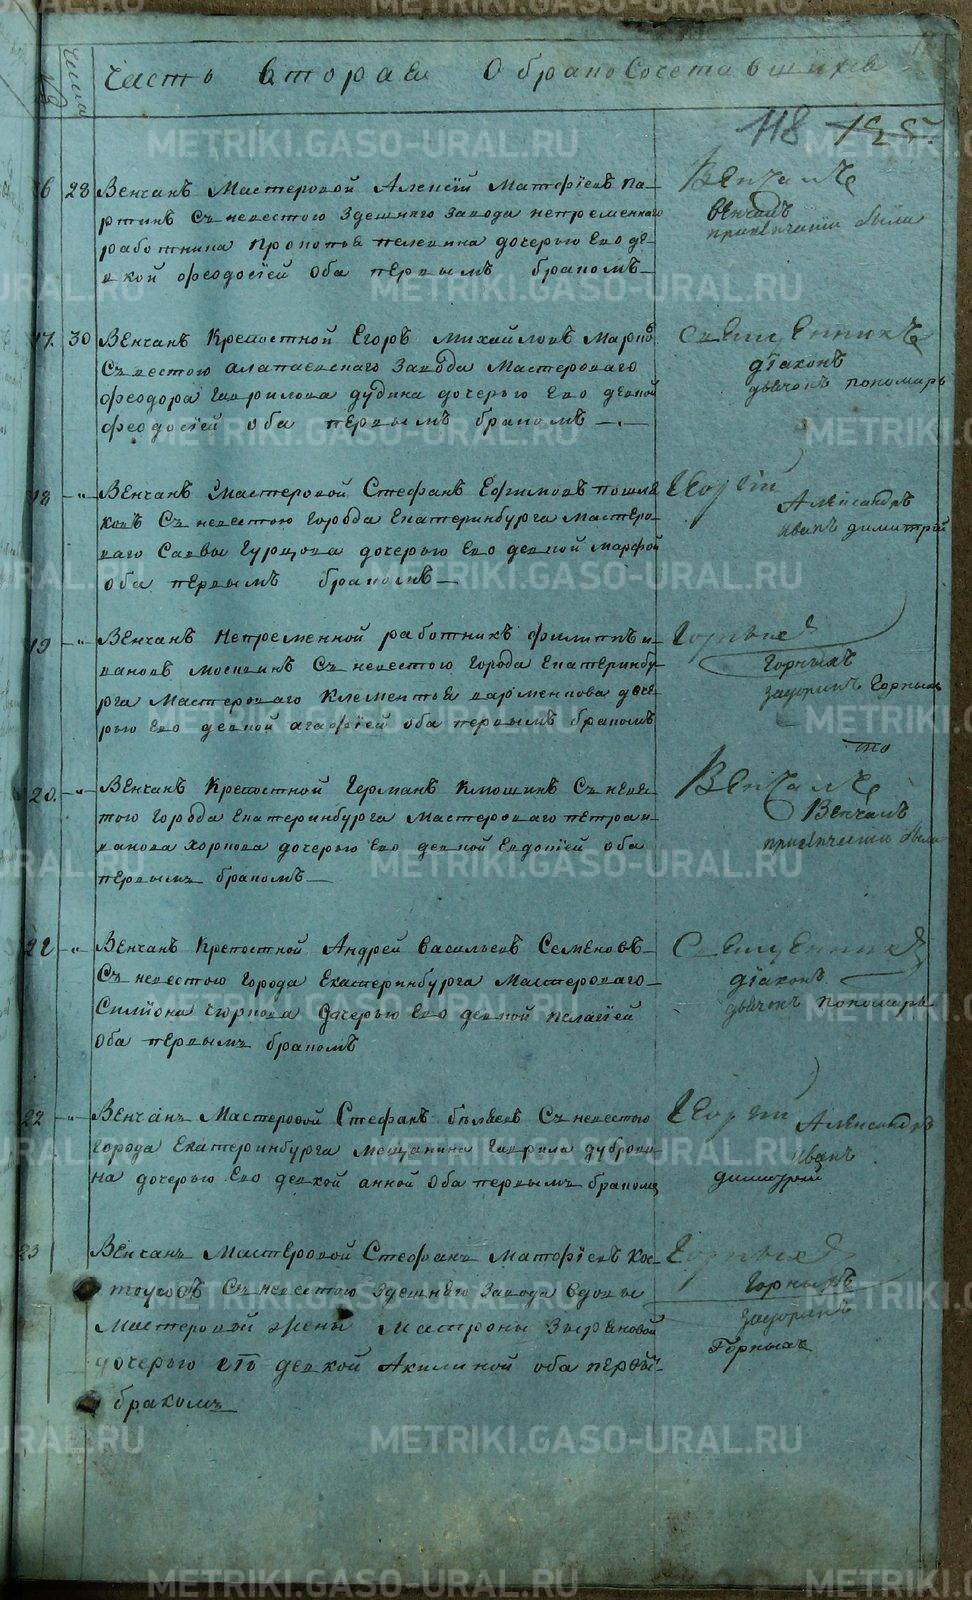 числа
№
часть вторая о бракосочетавшихся
118 125
16 28 Венчанъ Мастеровой Алексiй Матфiевъ Па-
ртинъ Съ невестою Здешняго Завода непременнаго
работника Прокопья пелевина дочерью Его де-
вкой феодосiей оба первымъ бракомъ
Венчалъ
венчалъ
17 30 Венчанъ Крепостной Егоръ Михайловъ
Съ невестою алапаевскаго Завода Мастероваго
феодора Гаврилова дудина дочерью Его девкой
феодосiей оба первымъ бракомъ
Священникъ
дiаконъ
дьячокъ пономарь
18 -"- Венчанъ Мастеровой Стефанъ Ефимовъ
ковъ Съ невестою города Екатеринбурга Мастеро-
ваго Саввы Гурцова дочерью Его девкой марфой
оба первымъ бракомъ
Георгiй
Александръ
иванъ димитрiй
19 -"- Венчанъ Непременной работникъ филиппъ и-
вановъ москвинъ Съ невестою города Екатеринбу-
рга Мастероваго Клементья дочь-
рью Его девкой агафiей оба первымъ бракомъ
Горныхъ
Задоринъ Горныхъ
20 -"- Венчанъ Крепостной Германъ Клюшинъ Съ невес-
тою города Екатеринбурга мастероваго петра и-
ванова хоркова дочерью Его девкой Евдокiей оба
первымъ бракомъ
то
Венчалъ
Венчалъ
-"- Венчанъ Крепостной Андрей Васильевъ Семеновъ
Съ невестою города Екатеринбурга Мастероваго
Симiона дочерью Его девкой пелагiей
оба первымъ бракомъ
Священникъ
дiаконъ
дьячокъ пономарь
22 -"- Венчанъ Мастеровой Стефанъ беляевъ Съ невестою
города Екатеринбурга Мещанина Гаврила дуброви-
на дочерью Его девкой анной оба первымъ бракомъ
Георгiй
Александръ
иванъ
димитрiй
23 Венчанъ Мастеровой Стефанъ Матфiевъ Кос-
тоусовъ Съ невестою Здешняго Завода вдовы
мастеровой жены Матроны Зыряновой
дочерью Его девкой Акилиной оба первы-
бракомъ
Горныхъ
Задоринъ
Горныхъ
METRIKI.GASO-URAL.RU